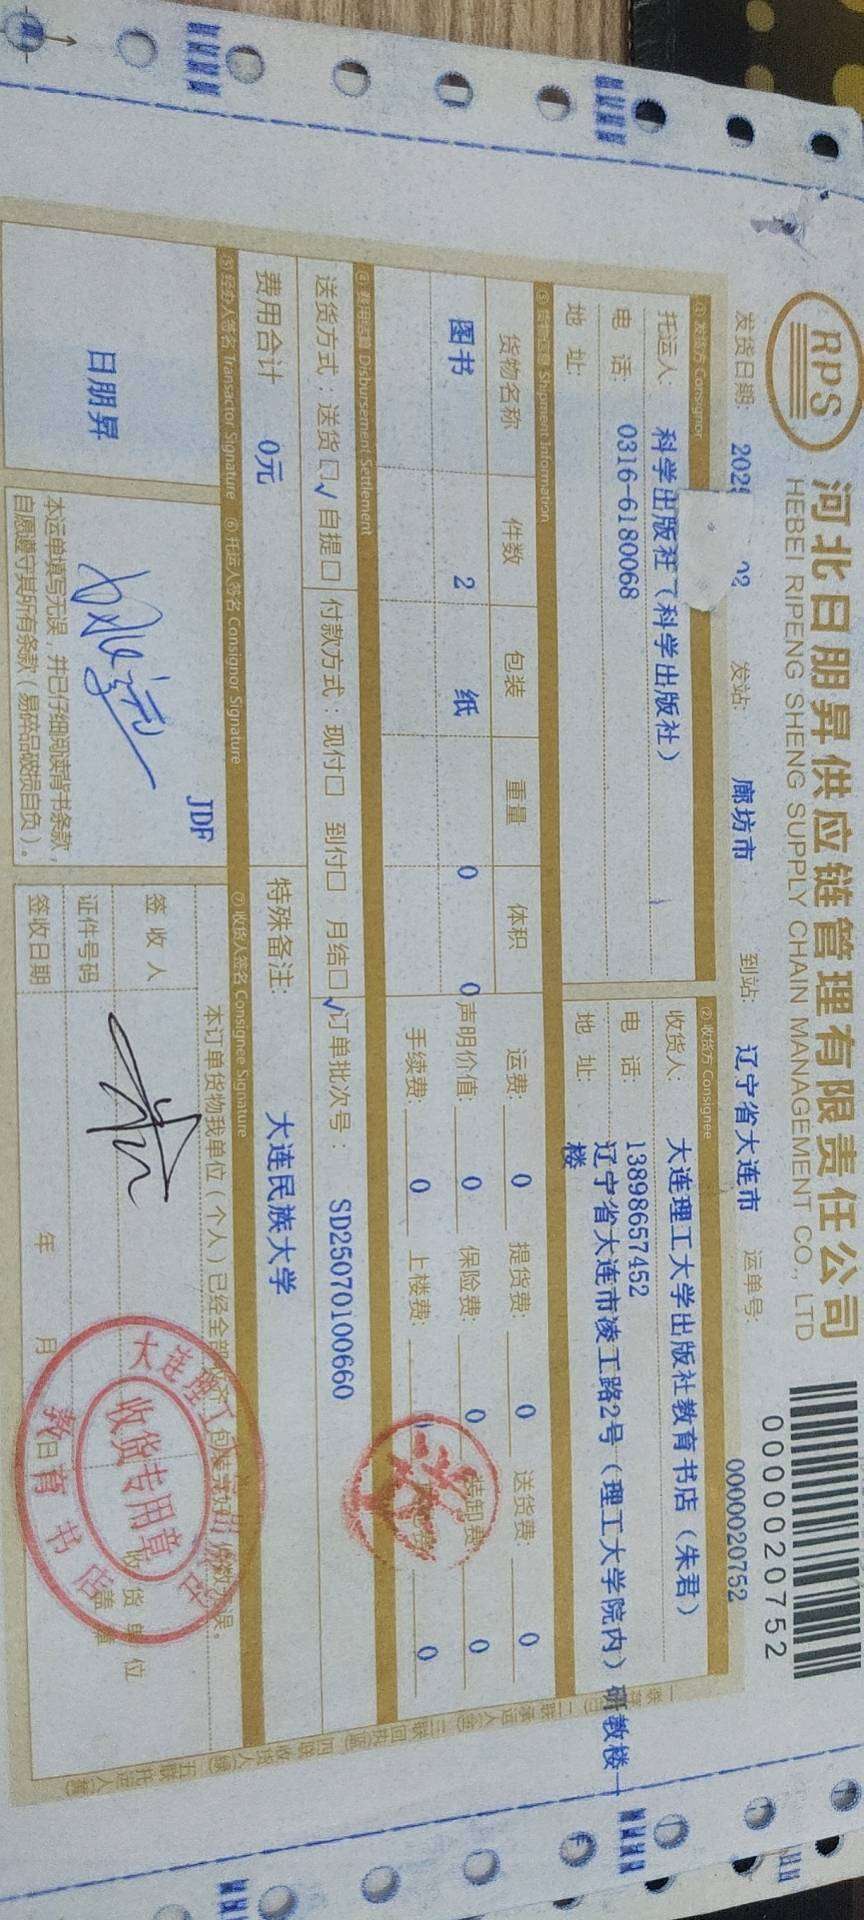 RPS
河北日朋昇供应链管理有限责任公司
HEBEI RIPENG SHENG SUPPLY CHAIN MANAGEMENT CO., LTD
0000020752
发货日期: 202 02 发站: 廊坊市 到站: 辽宁省大连市 运单号: 0000020752
① 发货方 Consignor ② 收货方 Consignee
托运人: 科学出版社 (科学出版社) 收货人: 大连理工大学出版社教育书店(朱君)
电 话: 0316-6180068 电 话: 13898657452
地 址: 地 址: 辽宁省大连市凌工路2号(理工大学院内)研教楼一
楼
③ 货物信息 Shipment Information
货物名称 件数 包装 重量 体积 运费: 0 提货费: 0 送货费: 0
图书 2 纸 0 0 声明价值: 0 保险费: 0 装卸费 0
手续费: 0 上楼费: 0
④ 费用结算 Disbursement Settlement
送货方式:送货□√ 自提□ 付款方式:现付□ 到付□ 月结□√ 订单批次号: SD25070100660
费用合计 0元 特殊备注: 大连民族大学
⑤ 经办人签名 Transactor Signature ⑥ 托运人签名 Consignor Signature ⑦ 收货人签名 Consignee Signature
日朋昇
JDF
本运单填写无误,并已仔细阅读背书条款,
自愿遵守其所有条款(易碎品破损自负)。
本订单货物我单位(个人)已经全部
签 收 人
证件号码
签收日期 年 月 日
收货单位
盖章
大连理工
教育书店
收货专用章